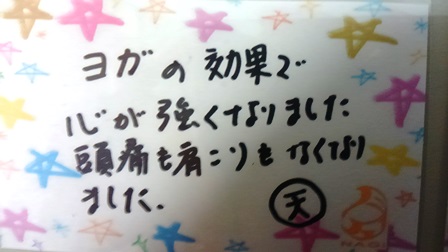 ヨガの効果で
心が強くなりました
頭痛も肩こりもなくなり
ました.
天